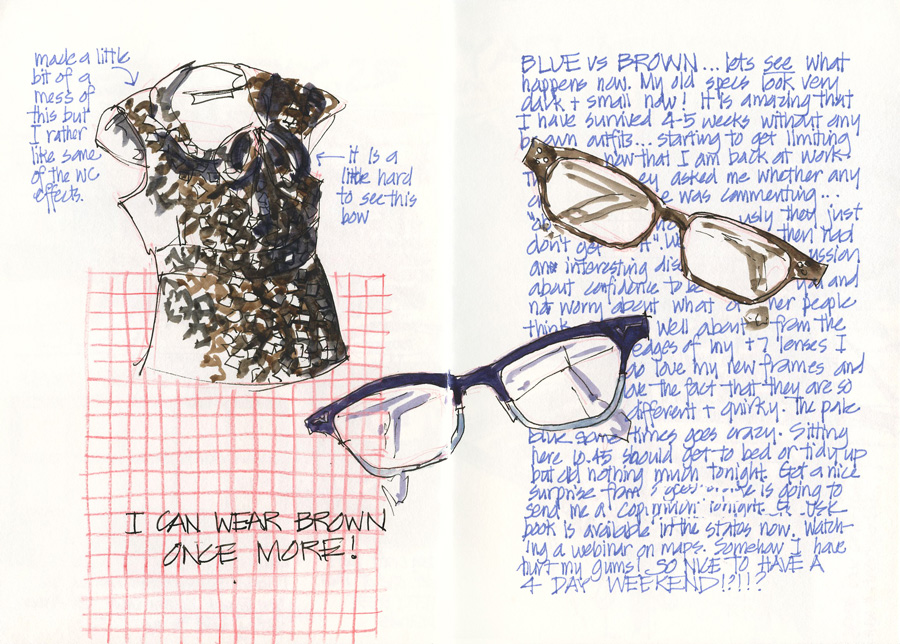 made a little
bit of a
mess of
this but
I rather
like some
of the WC
effects.
it is a
little hard
to see this
bow
I CAN WEAR BROWN
ONCE MORE!
BLUE vs BROWN... lets see what
happens now. My old specs look very
dark + small now! It is amazing that
I have survived 4-5 weeks without any
brown outfits... starting to get limiting
now that I am back at work.
ey asked me whether any
e was commenting...
usly they just
don't get it". W then had
an interesting dis ussion
about confidence to be you and
not worry about what o her people
think. well about from the
edges of my +7 lenses I
do love my new frames and
ove the fact that they are so
different + quirky. The pale
blue some times goes crazy. Sitting
here 10.45 should get to bed or tidy up
but did nothing much tonight. Got a nice
surprise from is going to
send me a copy tonight.
book is available in the states now. Watch-
ing a webinar on maps. Somehow I have
hurt my gums! SO NICE TO HAVE A
4 DAY WEEKEND!?!!?